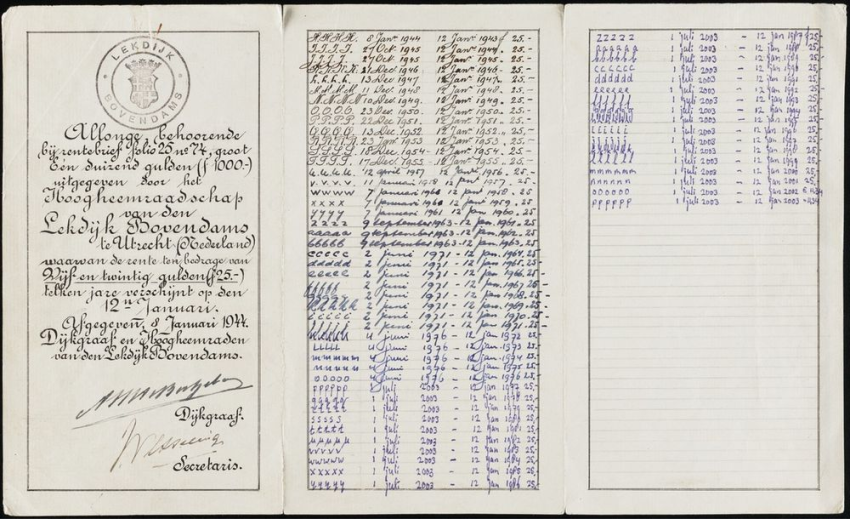 LEKDIJK
BOVENDAMS
Allonge, behoorende
bij rentebrief folio 25 no 74, groot
Een duizend gulden (ƒ 1000.-)
uitgegeven door het
Hoogheemraadschap
van den
Lekdijk Bovendams,
te Utrecht (Nederland)
waarvan de rente ten bedrage van
Vijf en twintig gulden (ƒ25.-)
telken jare verschijnt op den
12n Januari.
Afgegeven, 8 Januari 1944.
Dijkgraaf en Hoogheemraden
van den Lekdijk Bovendams.
Dijkgraaf.
Secretaris.
H.H.H.H. 8 Jan. 1944 12 Jan. 1943 f 25.-
I.I.I.I. 27 Oct. 1945 12 Jan. 1944. 25.-
27 Oct 1945 12 Jan. 1945. 25.-
K.K.K.K. 21 Dec 1946 12 Jan. 1946. 25.-
L.L.L.L. 13 Dec. 1947 12 Jan. 1947. 25.-
M.M.M.M. 11 Dec. 1948 12 Jan. 1948. 25.-
N.N.N.N. 10 Dec. 1949. 12 Jan. 1949. 25.-
O.O.O.O. 23 Dec. 1950 12 Jan. 1950. 25.-
P.P.P.P. 22 Dec. 1951. 12 Jan. 1951. 25.-
13 Dec. 1952 12 Jan. 1952. 25.-
R.R.R.R. 23 Dec. 1953 12 Jan. 1953. 25.-
S.S.S.S. 18 Dec. 1954 - 12 Jan. 1954. - 25.-
T.T.T.T. 17 Dec. 1955 - 12 Jan. 1955. - 25.-
u.u.u.u. 12 april 1957 12 Jan. 1956. - 25.-
v.v.v.v. 11 januari 1958 12 jan. 1957. - 25.-
wwww 7 januari 1960 12 jan. 1958. - 25.-
xxxx 7 januari 1960 12 jan. 1959. - 25.-
yyyy 7 januari 1961 12 jan. 1960. - 25.-
zzzz 9 september 1963 - 12 jan. 1961. - 25.-
aaaaa 9 september 1963 - 12 jan. 1962. - 25.-
bbbbb 9 september 1963 - 12 jan. 1963. - 25.-
ccccc 2 juni 1971 - 12 jan. 1964. 25.-
ddddd 2 juni 1971 - 12 jan. 1965. 25.-
eeeee 2 juni 1971 - 12 jan. 1966. 25.-
fffff 2 juni 1971 - 12 jan. 1967. 25.-
ggggg 2 juni 1971 - 12 jan. 1968. 25.-
hhhhh 2 juni 1971 - 12 jan. 1969. 25.-
iiiii 2 juni 1971 - 12 jan. 1970. - 25.-
jjjjj 2 juni 1971 - 12 jan. 1971. - 25.-
kkkkk 4 juni 1976 - 12 jan 1972 25,-
lllll 4 juni 1976 - 12 jan 1973 25,-
mmmmm 4 juni 1976 - 12 jan 1974 25,-
nnnnn 4 juni 1976 - 12 jan 1975 25,-
ooooo 4 juni 1976 - 12 jan 1976 25,-
ppppp 1 juli 2003 - 12 jan 1977 25,-
qqqqq 1 juli 2003 - 12 jan 1978 25,-
1 juli 2003 - 12 jan 1979 25,-
sssss 1 juli 2003 - 12 jan 1980 25,-
ttttt 1 juli 2003 - 12 jan 1981 25,-
uuuuu 1 juli 2003 - 12 jan 1982 25,-
vvvvv 1 juli 2003 - 12 jan 1983 25,-
wwwww 1 juli 2003 - 12 jan 1984 25,-
xxxxx 1 juli 2003 - 12 jan 1985 25,-
yyyyy 1 juli 2003 - 12 jan 1986 25,-
zzzzz 1 juli 2003 - 12 jan 1987 ƒ 25,-
aaaaaa 1 juli 2003 - 12 jan 1988 25,-
bbbbbb 1 juli 2003 - 12 jan 1989 25,-
cccccc 1 juli 2003 - 12 jan 1990 25,-
dddddd 1 juli 2003 - 12 jan 1991 25,-
eeeeee 1 juli 2003 - 12 jan 1992 25,-
ffffff 1 juli 2003 - 12 jan 1993 25,-
gggggg 1 juli 2003 - 12 jan 1994 25,-
hhhhhh 1 juli 2003 - 12 jan 1995 25,-
iiiiii 1 juli 2003 - 12 jan 1996 25,-
jjjjjj 1 juli 2003 - 12 jan 1997 25,-
kkkkkk 1 juli 2003 - 12 jan 1998 25,-
llllll 1 juli 2003 - 12 jan 1999 25,-
mmmmmm 1 juli 2003 - 12 jan 2000 25,-
nnnnnn 1 juli 2003 - 12 jan 2001 25,-
oooooo 1 juli 2003 - 12 jan 2002 € 11,34
pppppp 1 juli 2003 - 12 jan 2003 11,34